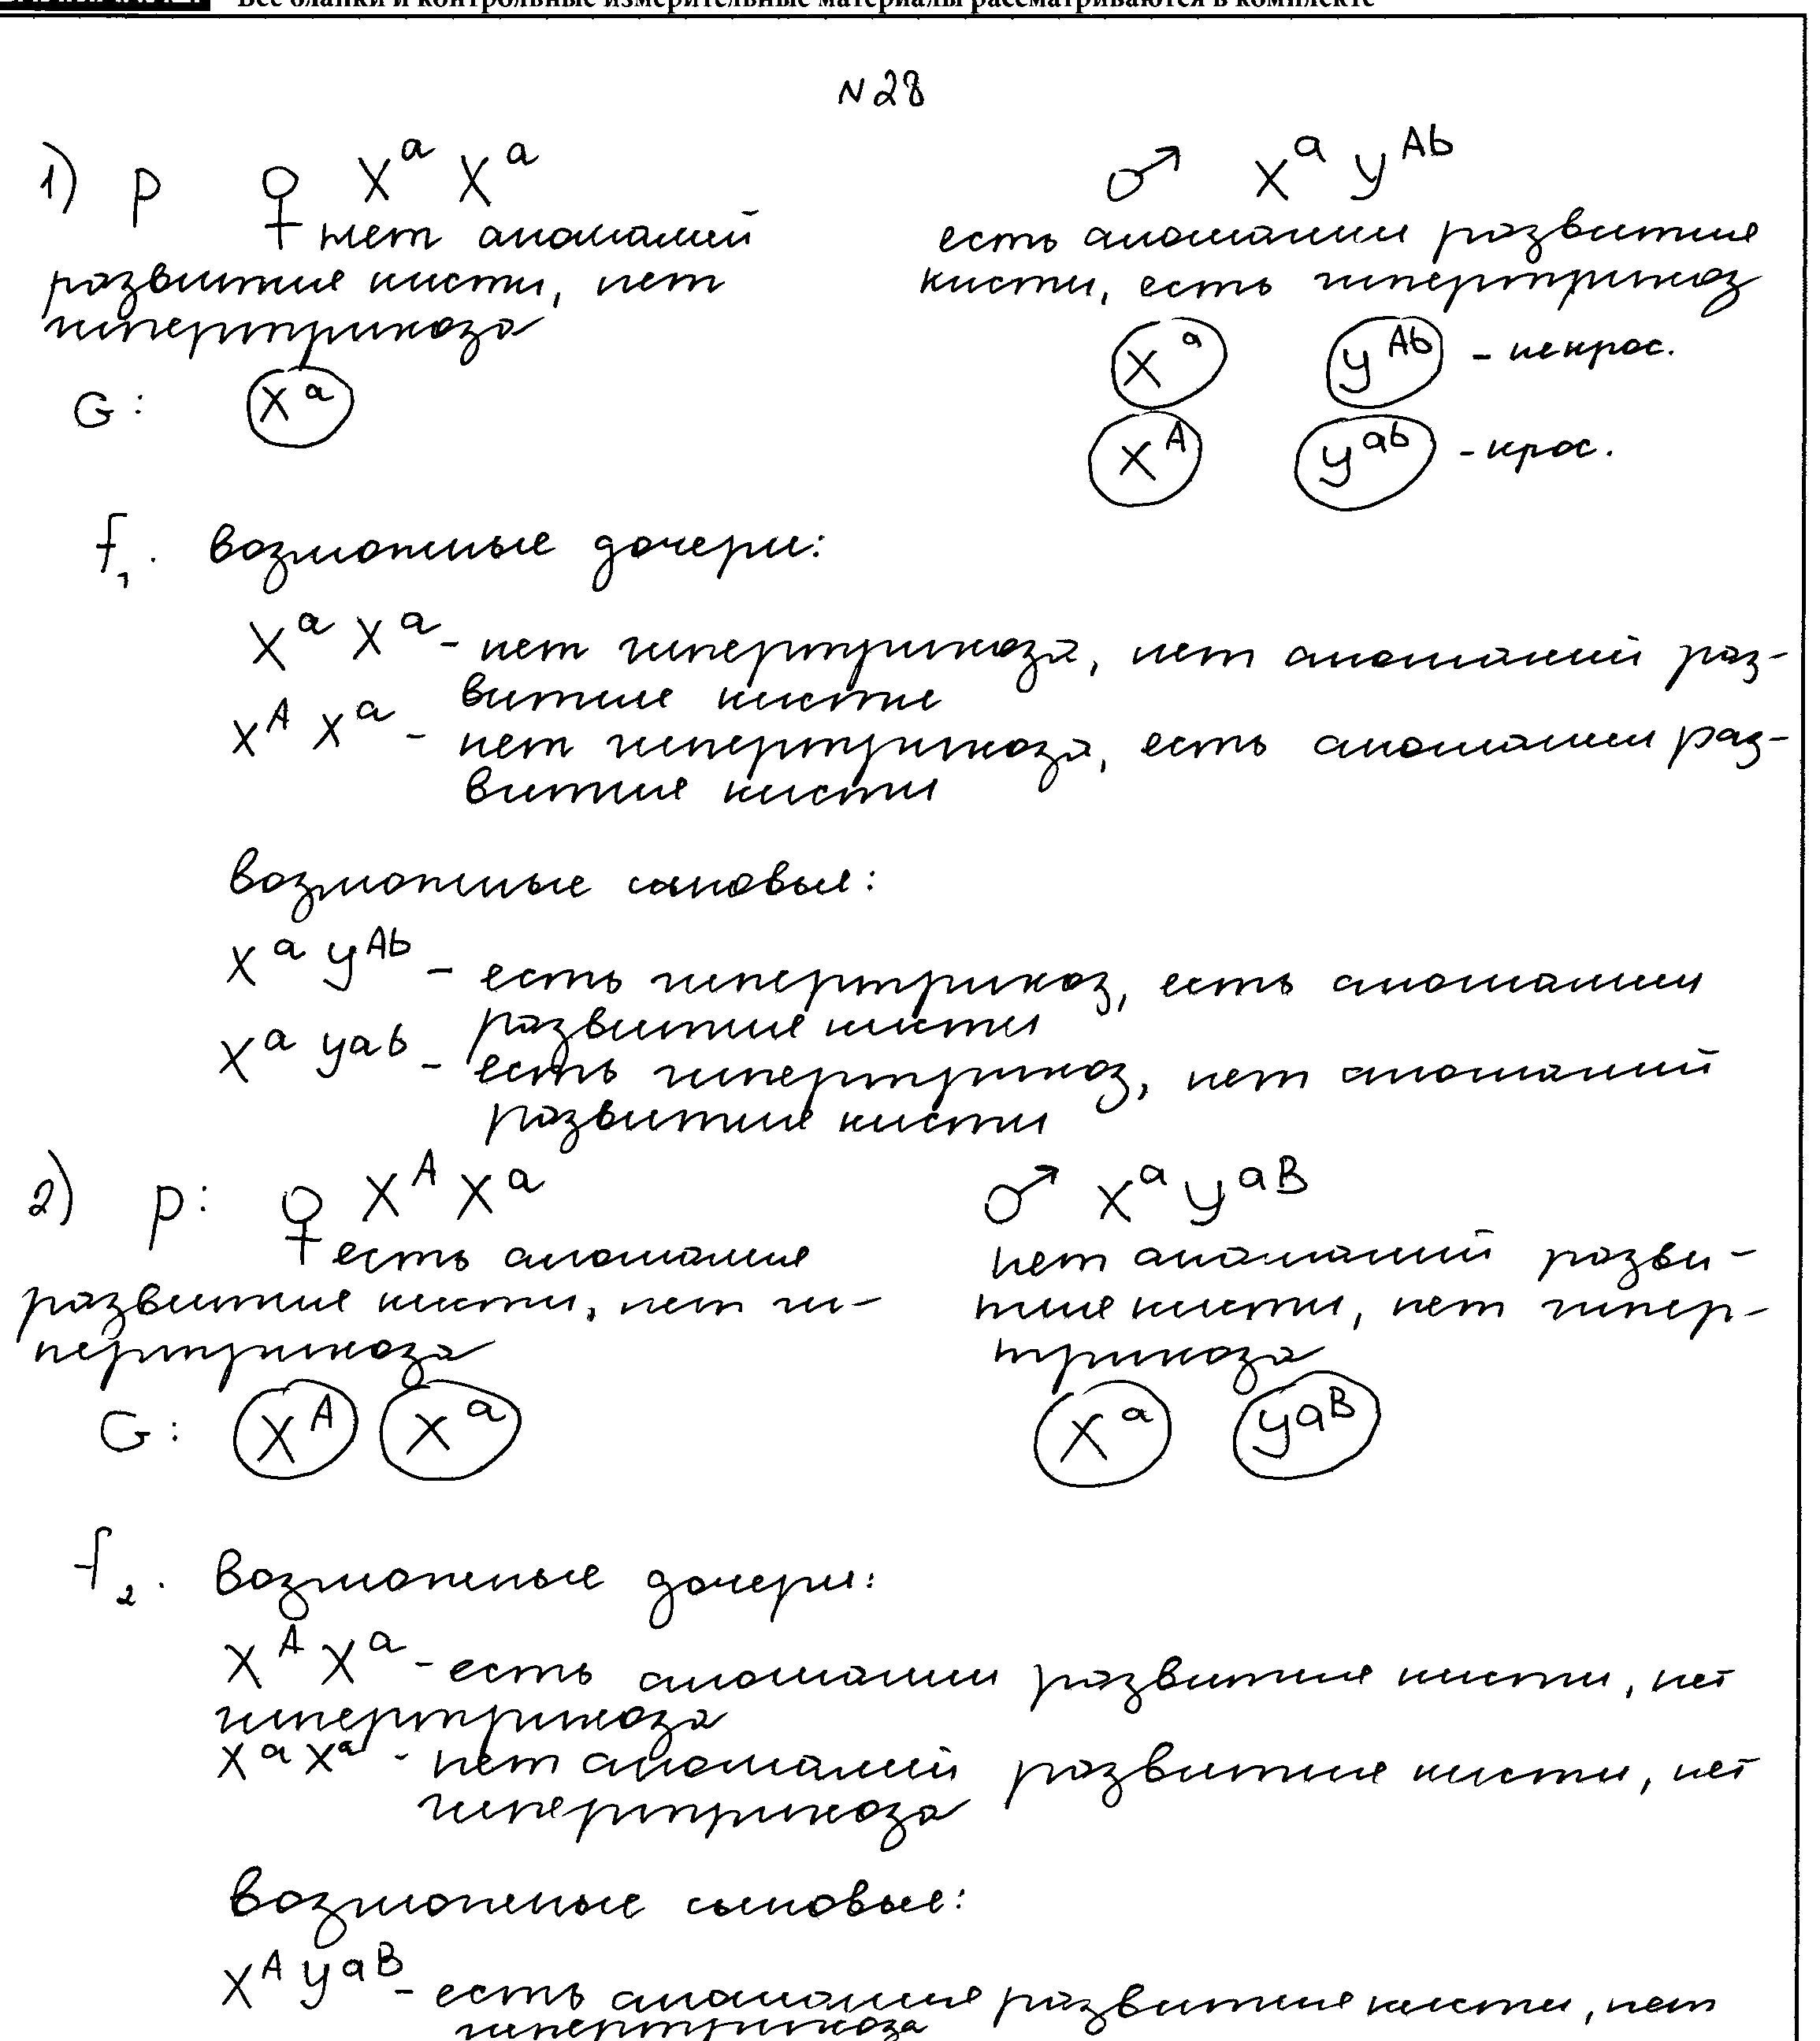 Все бланки и контрольные измерительные материалы рассматриваются в комплекте
N28
1) P ♀ X^a X^a ♂ X^a y^Ab
нет аномалий есть аномалии развития
развития кисти, нет кисти, есть гипертрихоз
гипертрихоза
X^a y^Ab - некрос.
G: X^a
X^A y^ab - крос.
f1. возможные дочери:
X^a X^a - нет гипертрихоза, нет аномалий раз-
вития кисти
X^A X^a - нет гипертрихоза, есть аномалии раз-
вития кисти
возможные сыновья:
X^a y^Ab - есть гипертрихоз, есть аномалии
развития кисти
X^a y^ab - есть гипертрихоз, нет аномалий
развития кисти
2) p: ♀ X^A X^a ♂ X^a y^aB
есть аномалия нет аномалий разви-
развития кисти, нет ги- тия кисти, нет гипер-
пертрихоза трихоза
G: X^A X^a X^a y^aB
f2. Возможные дочери:
X^A X^a - есть аномалии развития кисти, нет
гипертрихоза
X^a X^a - нет аномалий развития кисти, нет
гипертрихоза
возможные сыновья:
X^A y^aB - есть аномалия развития кисти, нет
гипертрихоза